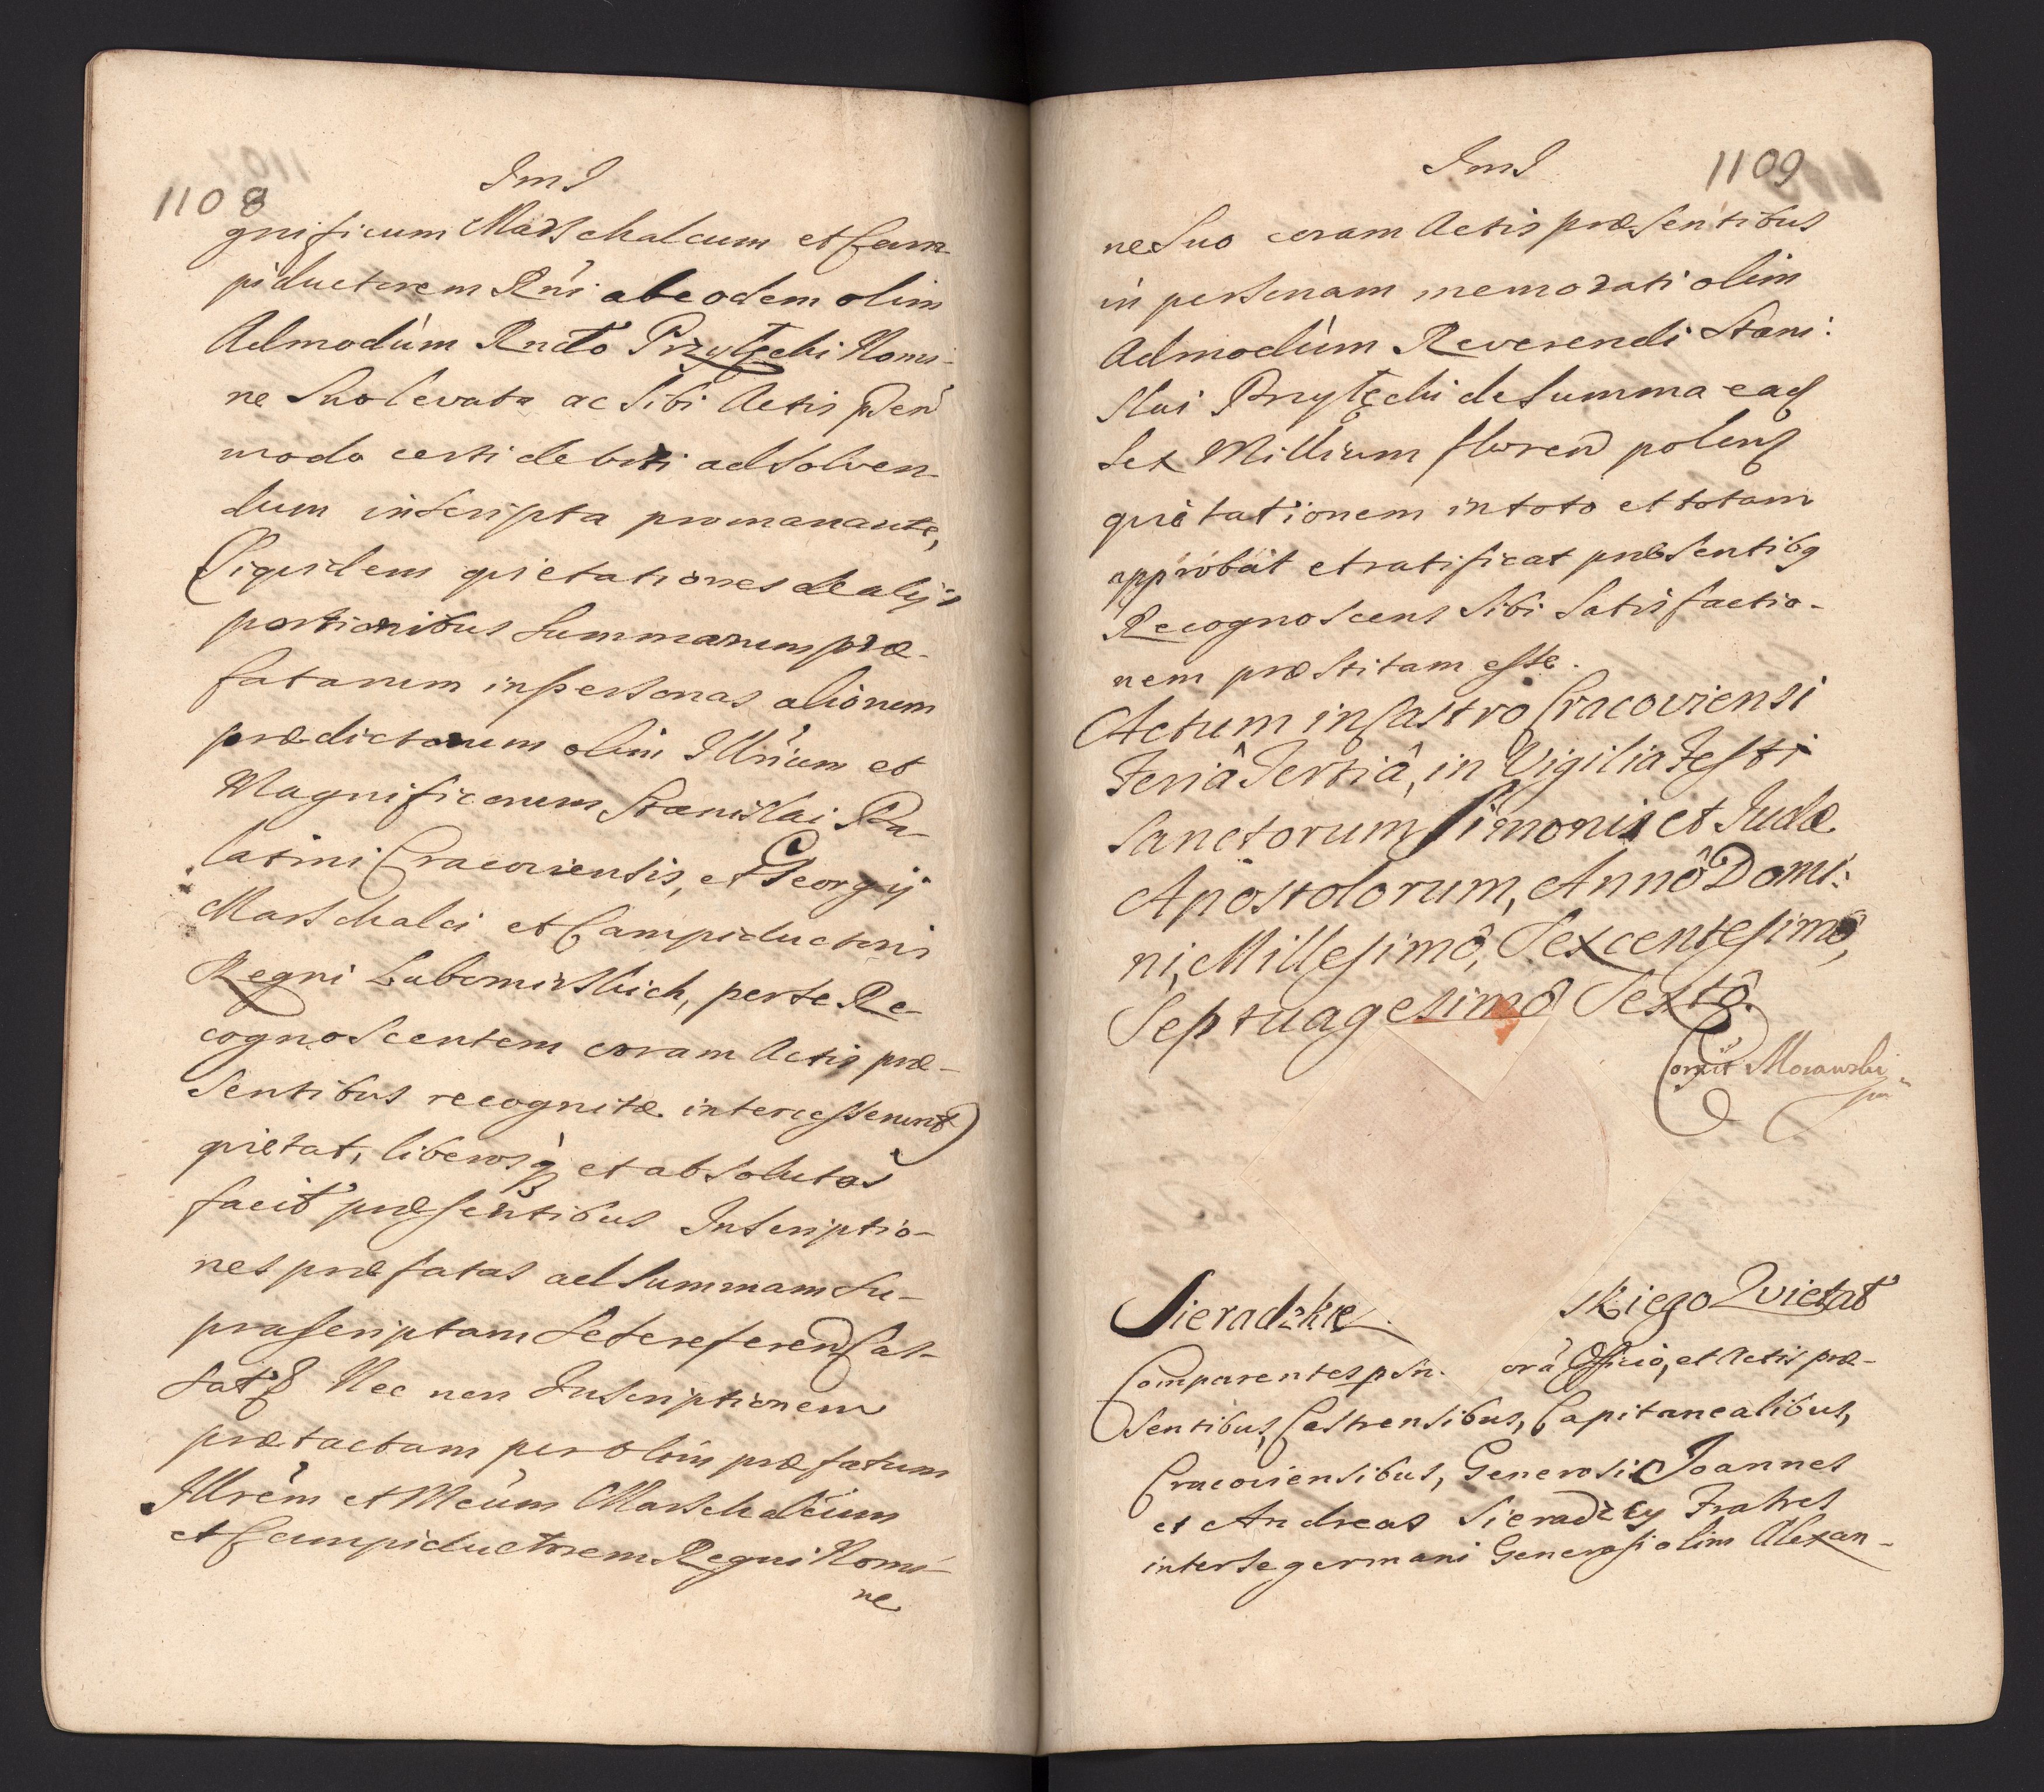 1108
ImI
gnificum Marschalcum et Cam-
piductorem Rni ab eodem olim
Admodúm Rndo Przyłęcki Nomi-
ne Suo levata ac Sibi Actis pñ
modo certi debiti ad Solven-
dum inscripta promanante,
(Siquidem quietationes de alijs
portionibus Summarum præ-
fatarum in personas aliorum
prædictorum olim Illrium et
Magnificorum Stanislai Pa-
latini Cracoviensis, et Georgij
Marschalci et Campiductoris
Regni Lubomirskich, per se Re-
cognoscentem coram Actis præ-
sentibus recognitæ intercesserunt)
quietat, liberosq et absolutos
facit præsentibus Inscriptio-
nes præfatas ad Summam Su-
prascriptam Se se referen Cas-
sat Nec non Inscriptionem
prætactam per olim præfatum
Illrem et Mcum Marschalcum
et Campiductorem Regni Nomi-
ne
ImI
1109
ne Suo coram Actis præsentibus
in personam memorati olim
Admodùm Reverendi Stani:
slai Przyłęcki de Summa ead
Sex Millium floren polens
quietationem in toto et totam
approbat et ratificat præsentibq
Recognoscens Sibi Satisfactio-
nem præstitam esse.
Actum in Castro Cracoviensi
Feriâ Tertiâ, in Vigilia Festi
Sanctorum Simonis et Judæ
Apostolorum, Annô Domi:
ni, Millesimô, Sexcentesimô,
Septuagesimô Sextô.
Corrit Morawski
Sieradzkie skiego Quietat
Comparentes psn. orã Officio, et Actis præ-
sentibus, Castrensibus, Capitanealibus,
Cracoviensibus, Generosi Joannes
et Andreas Sieradzcy Fratres
inter se germani Generosi olim Alexan-